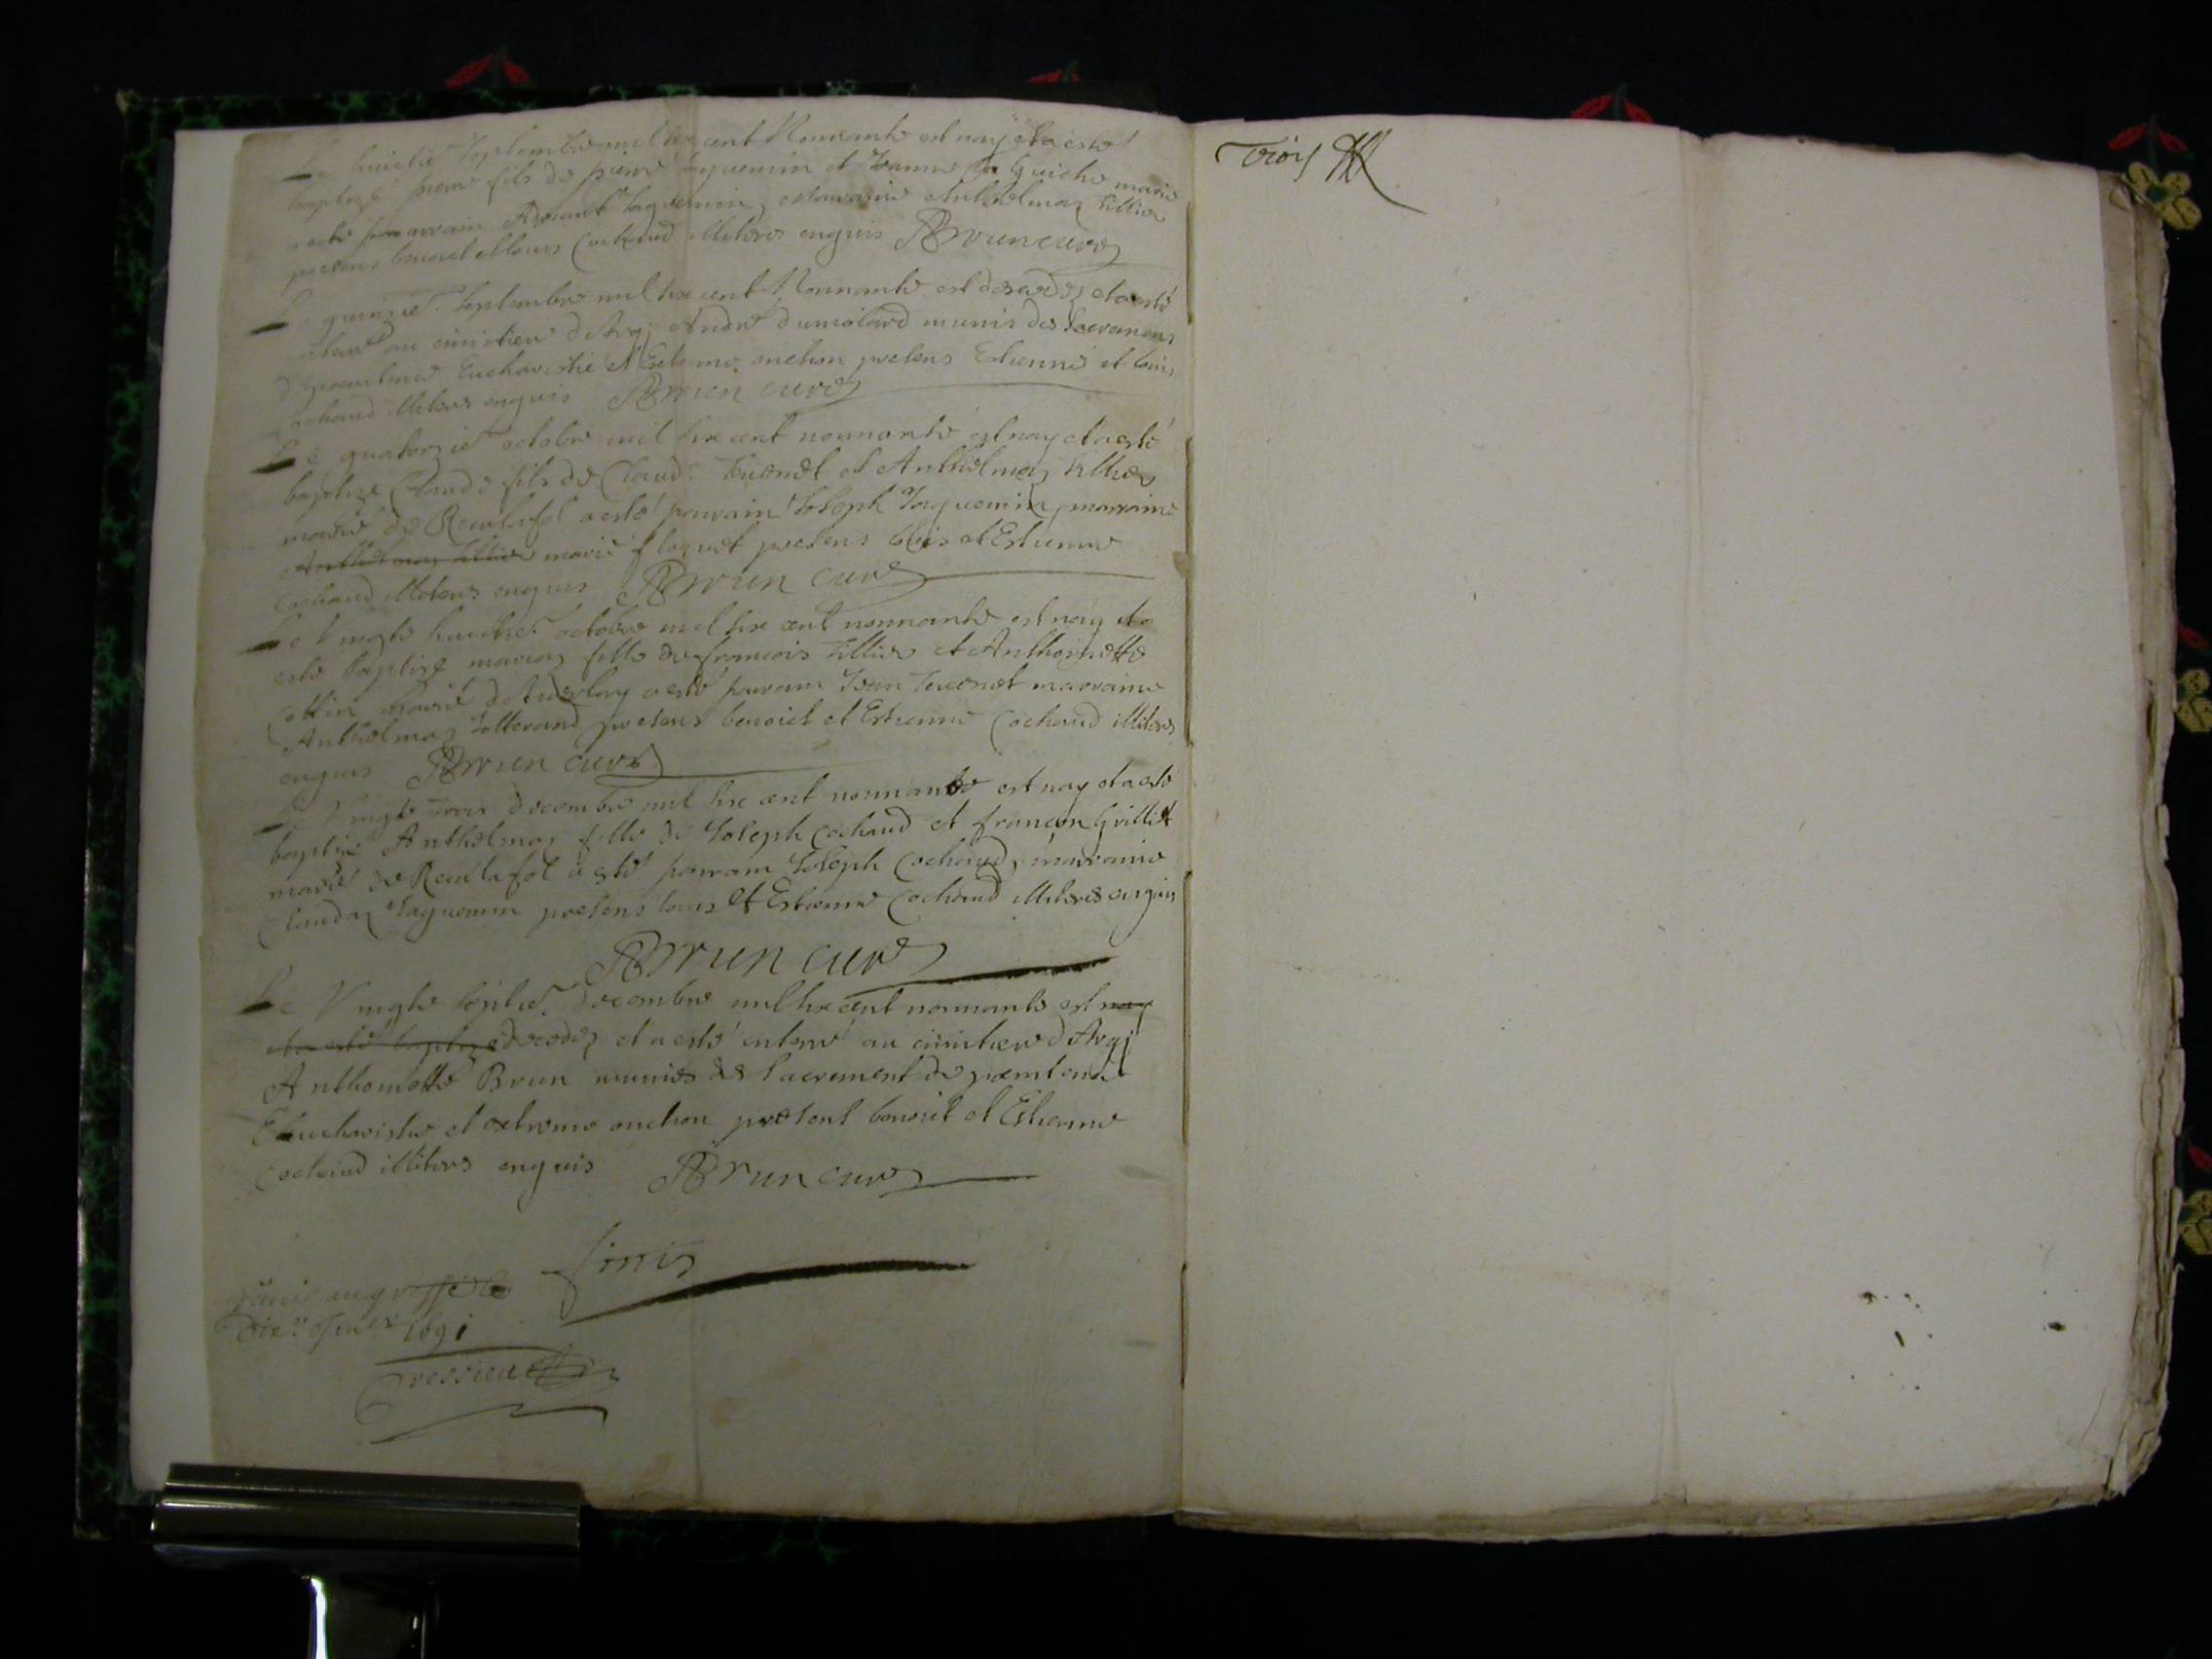 Le huictie septembre mil six cent Nonnante est nay et a esté
baptizé pierre fils de pierre Jaquemin et Jeanne La Guiche mariés
a esté parrain Jaquemin, marraine Anthelmaz Tillier
presens benoict et louis Cochaud illiteres enquis ABrun curé
Le quinzie. septembre mil six cent Nonnante est decedez et a esté
enterré au cimistiere d'Argj André dumolard munis des sacremens
de penitence Eucharistie et Extreme onction presens Estienne et louis
Cochaud illiteres enquis ABrun curé
Le quatorzie octobre mil six cent nonnante est nay et a esté
baptize Claude fils de Claude Tuenet et Anthelmaz Tillier
mariés de Reculafol a esté parrain Joseph Jaquemin, marraine
Anthelmaz Tillier marie floquet presens louis et Estienne
Cochaud illiteres enquis ABrun curé
Le Vingte huictie. octobre mil six cent nonnante est nay et a
esté baptize mariaz fille de francois Tillier et Anthoinette
Cottin mariés d'Auerlay a esté parrain Jean Teuenet marraine
Anthelmaz Jollerand presens benoict et Estienne Cochaud illiteres
enquis ABrun curé
Le Vingte trois decembre mil six cent nonnante est nay et a esté
baptizé Anthelmaz fille de Joseph Cochaud et françon Grilliet
mariés de Reculafol a esté parrain Joseph Cochaud, marraine
Claudaz Jaquemin presens louis et Estienne Cochaud illiteres enquis
ABrun curé
Le Vingte septie. decembre mil six cent nonnante est nay
et a esté baptize decedez et a esté enterré au cimitiere d'Argj
Anthoinette Brun munies des sacrement de penitence
Eucharistie et extreme onction present benoict et Estienne
Cochaud illiteres enquis ABrun curé
finis
au greffe le
1691
Cressieu
Trois